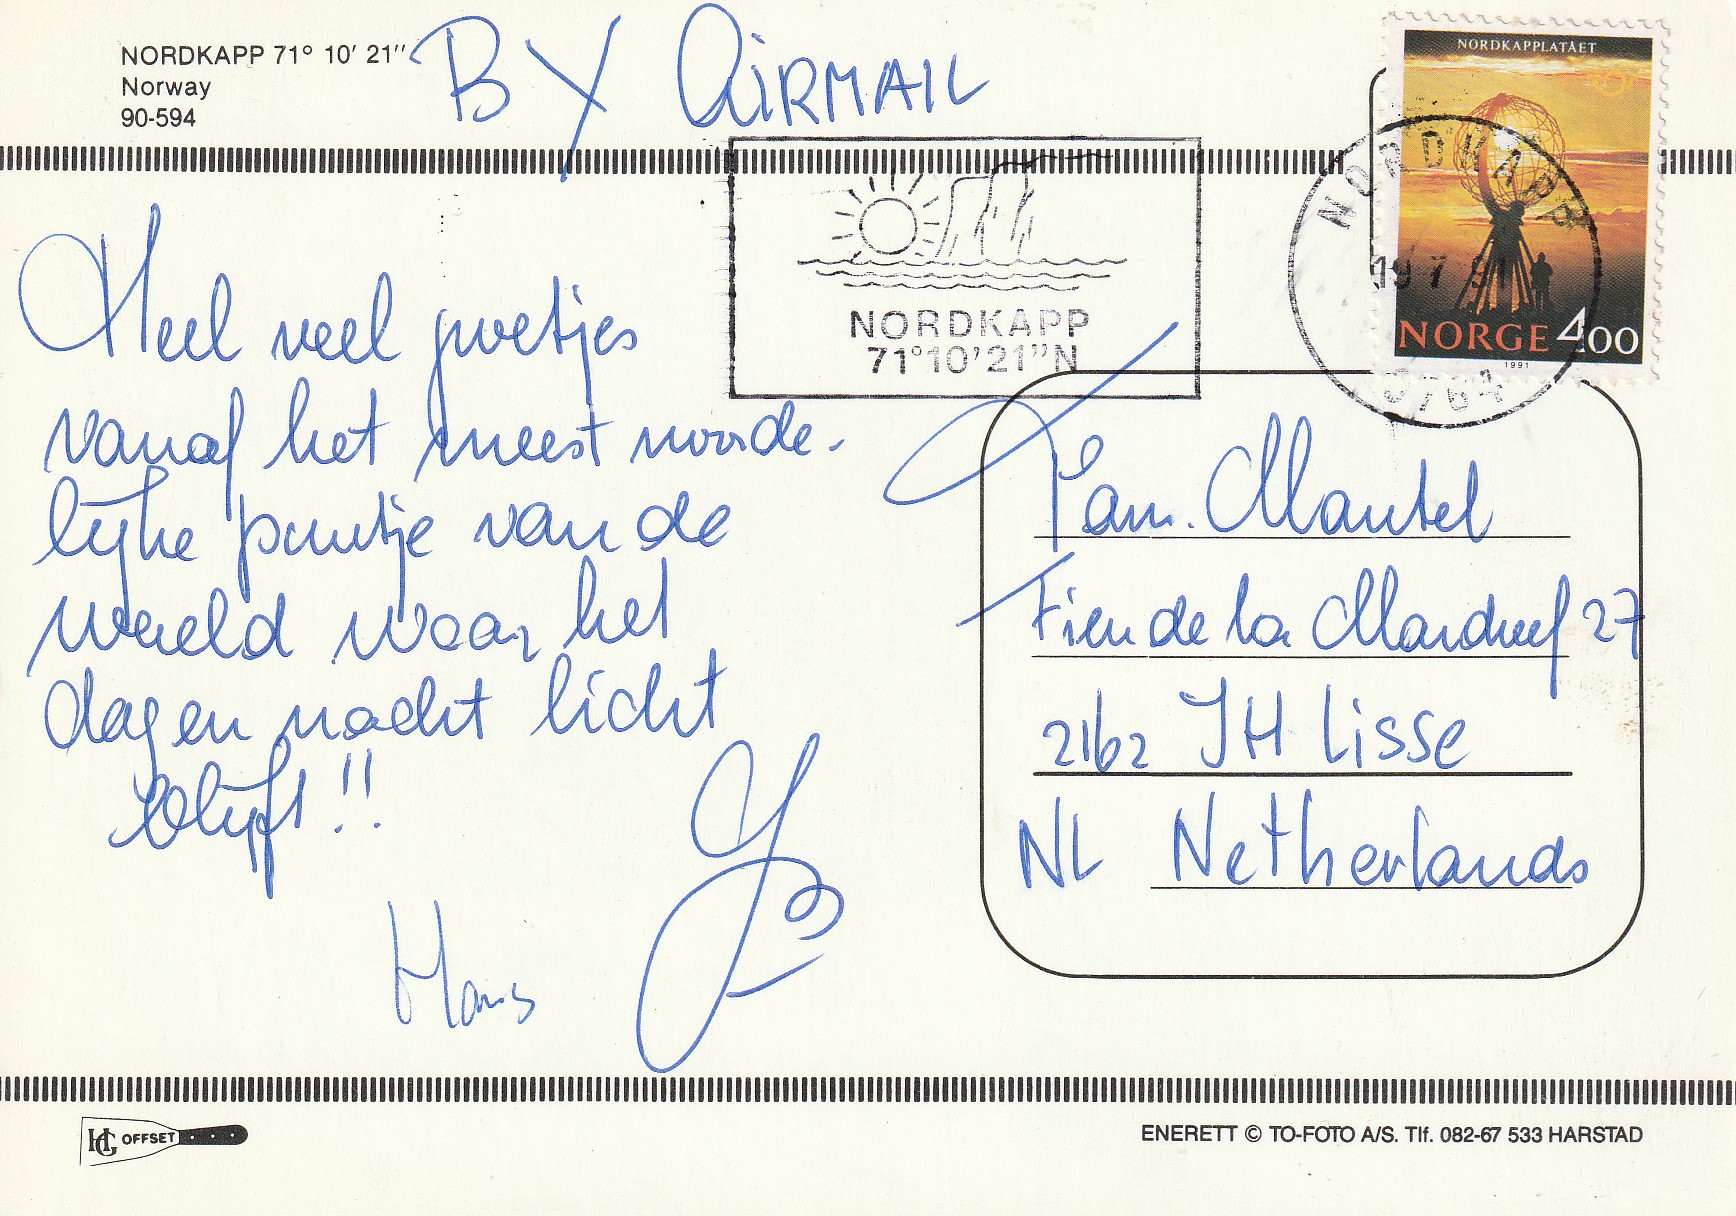 NORDKAPP 71° 10' 21"
Norway
90-594
BY AIRMAIL
NORDKAPPLATÅET
NORGE 4.00
1991
NORDKAPP
19 7 91
9764
NORDKAPP
71°10'21"N
Heel veel poetjes
vanaf het meest noorde-
lijke puntje van de
wereld waar het
dag en nacht licht
blijft!!
Hans
Fam. Mantel
Fien de la Mardreef 27
2162 JH Lisse
NL Netherlands
HG OFFSET
ENERETT © TO-FOTO A/S. Tlf. 082-67 533 HARSTAD